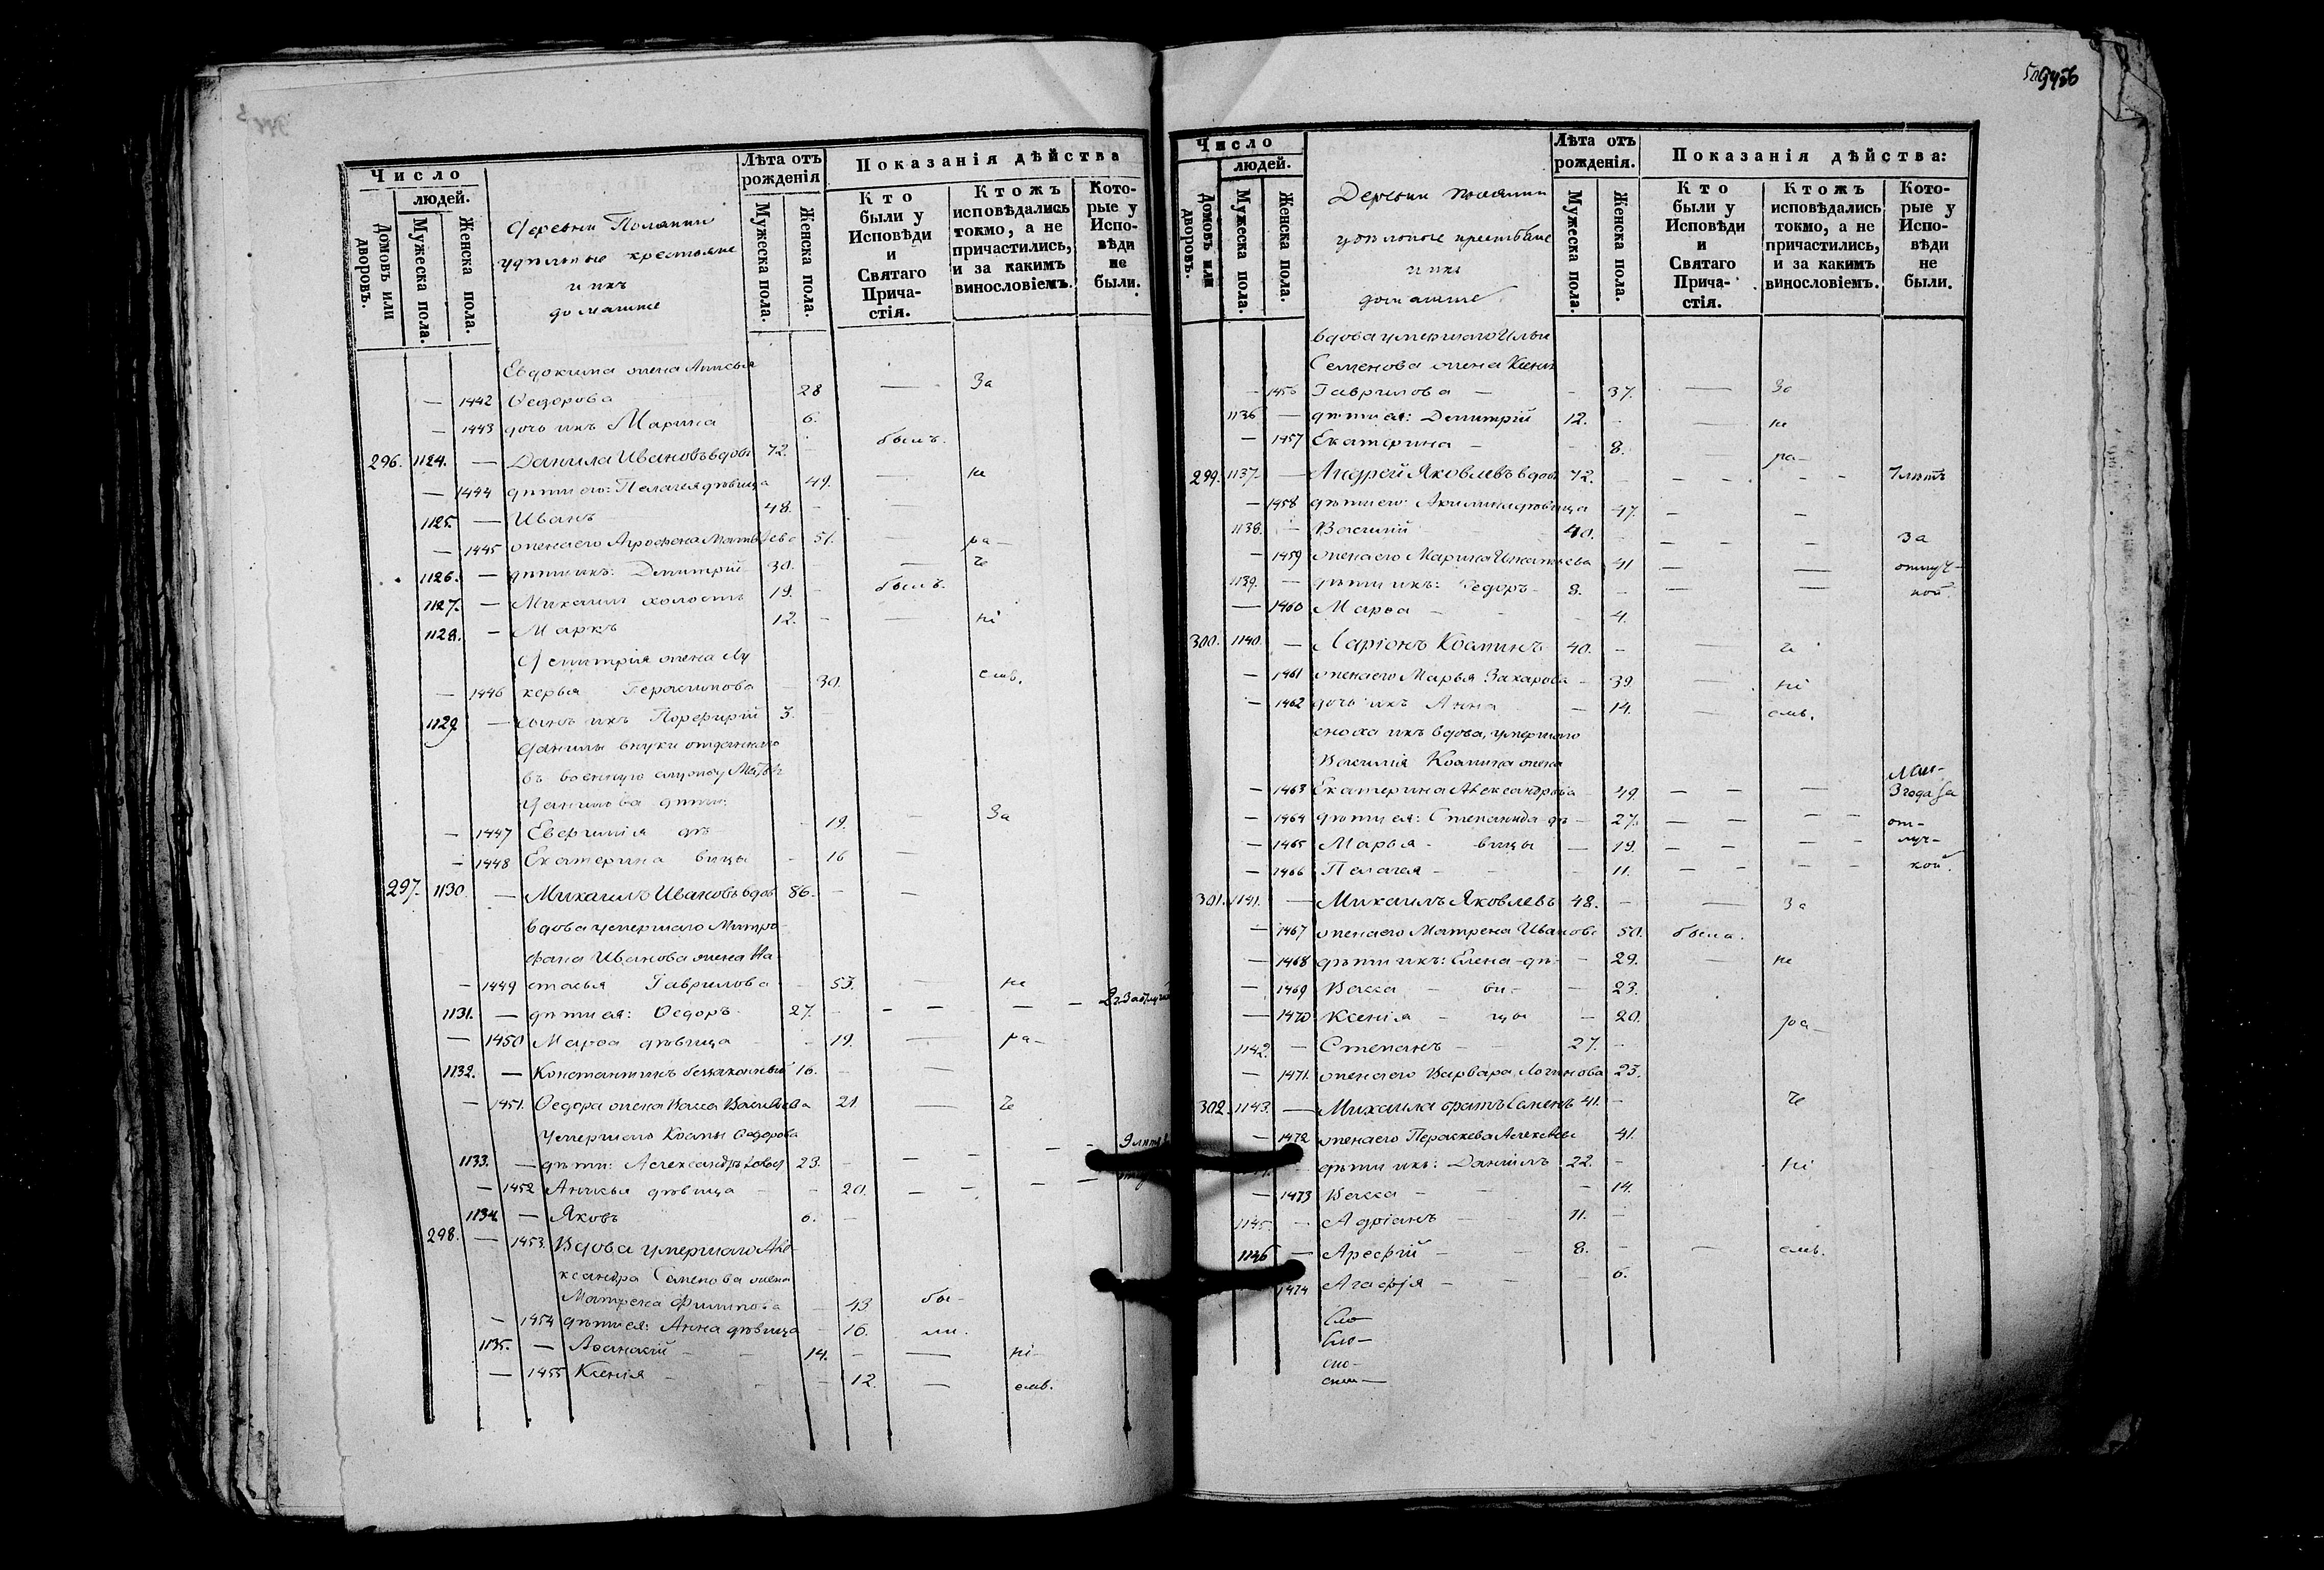 Число
людей.
Домовъ или дворовъ.
Мужеска пола.
Женска пола.
Деревни Поляни
удѣльные крестьяне
и ихъ
домашніе
Лѣта отъ рожденія
Мужеска пола.
Женска пола.
Показанія дѣйства
Кто были у Исповѣди и Святаго Прича-стія.
Ктожъ исповѣдались токмо, а не причастились, и за какимъ винословіемъ.
Кото-рые у Испо-вѣди не были.
Евдокима жена Анисья
— 1442 Ѳедорова 28 — За
— 1443 дочь ихъ Марина 6.
296. 1124. — Данила Ивановъ вдовъ 72. — былъ.
— 1444 дѣти его: Пелагея дѣвица 49. — не
1125. — Иванъ 48. — —
— 1445 жена его Агрофена Матвѣева 51. — ра-
1126. — дѣти ихъ: Димитрій 30. — че
1127. — Михаилъ холостъ 19. — былъ.
1128. — Маркъ 12. — — ні
Димитрія жена Лу
— 1446 керья Герасимова — 30. емъ.
1129 — сынъ ихъ Порфирій 3. —
Данилы внуки отданнаго
въ военную службу Матвѣя
Данилова дѣти:
— 1447 Евгенія дѣ- — 19. — За
— 1448 Екатерина вицы — 16 —
297. 1130. — Михаилъ Ивановъ вдов 86. — —
вдова умершаго Митро-
фана Иванова жена На-
— 1449 стасья Гаврилова — 53. — не
1131. — дѣти ея: Ѳедоръ 27. — — — — — 2 г. За отлуч
— 1450 Марѳа дѣвица — 19. — ра-
1132. — Константинъ беззаконный 16. — —
— 1451. Ѳедора жена Васса Васильева 21. — че
Умершаго Козмы Ѳедорова
1133. — дѣти: Александръ 23. — — — — 9 лѣтъ
— 1452 Анисья дѣвица — — 20. — — — —
1134 — Яковъ 6. —
298. — 1453. Вдова умершаго Але-
ксандра Семенова жена
Матрена Филипова — 43 бы-
— 1454 дѣти ея: Анна дѣвица — 16. ли.
1135. — Аѳанасій — — 14. — — ні-
— 1455 Ксенія — — — 12. — емъ.
Число
людей.
Домовъ или дворовъ.
Мужеска пола.
Женска пола.
Деревни Поляни
удѣльные крестьяне
и ихъ
домашніе
Лѣта отъ рожденія.
Мужеска пола.
Женска пола.
Показанія дѣйства:
Кто были у Исповѣди и Святаго Прича-стія.
Ктожъ исповѣдались токмо, а не причастились, и за какимъ винословіемъ.
Кото-рые у Испо-вѣди не были.
вдова умершаго Ильи
Семенова жена Ксенія
— 1456 Гаврилова — — 37. — За
1136 — дѣти ея: Димитрій 12. — — не
— 1457 Екатерина — 8. — ра-
299. 1137. — Андрей Яковлевъ вдовъ 72. — — — — 7 лѣтъ
— 1458 дѣти его: Акилина дѣвица 47. — —
1138. — Василій 40. — — — — За
— 1459 жена его Марина Игнатьева 41 — — отлуч-
1139. — дѣти ихъ: Ѳедоръ 8. — — — кой.
— 1460 Марѳа — — — 4.
300. 1140. — Ларіонъ Козминъ 40. — — че
— 1461 жена его Марья Захарова — 39. — ні
— 1462 дочь ихъ Анна — 14. — емъ.
сноха ихъ вдова, умершаго
Василія Козмина жена
— 1463 Екатерина Александрова 49. — — — 3 года За
— 1464 дѣти ея: Степанида дѣ- — 27. — — — — от-
— 1465 Марья — вицы — 19. — — — — луч-
— 1466 Пелагея — — — 11. — — — — кой.
301. 1141. — Михаилъ Яковлевъ 48. — — За
— 1467 жена его Матрена Иванова 50. была.
— 1468 дѣти ихъ: Елена — дѣ- — 29. — не
— 1469 Васса — ви- — 23.
— 1470 Ксенія — цы — 20. ра-
1142. — Степанъ — — 27. —
— 1471. жена его Варвара Логинова 23.
302. 1143. — Михаила братъ Семенъ 41. — че
— 1472 жена его Параскева Алексѣева 41.
— дѣти ихъ: Даніилъ 22. — ні
— 1473 Васса — — — 14.
1145. — Адріанъ — — 11. —
1146 — Арефій — — 8. — — емъ.
1474 Агафія — — — 6.